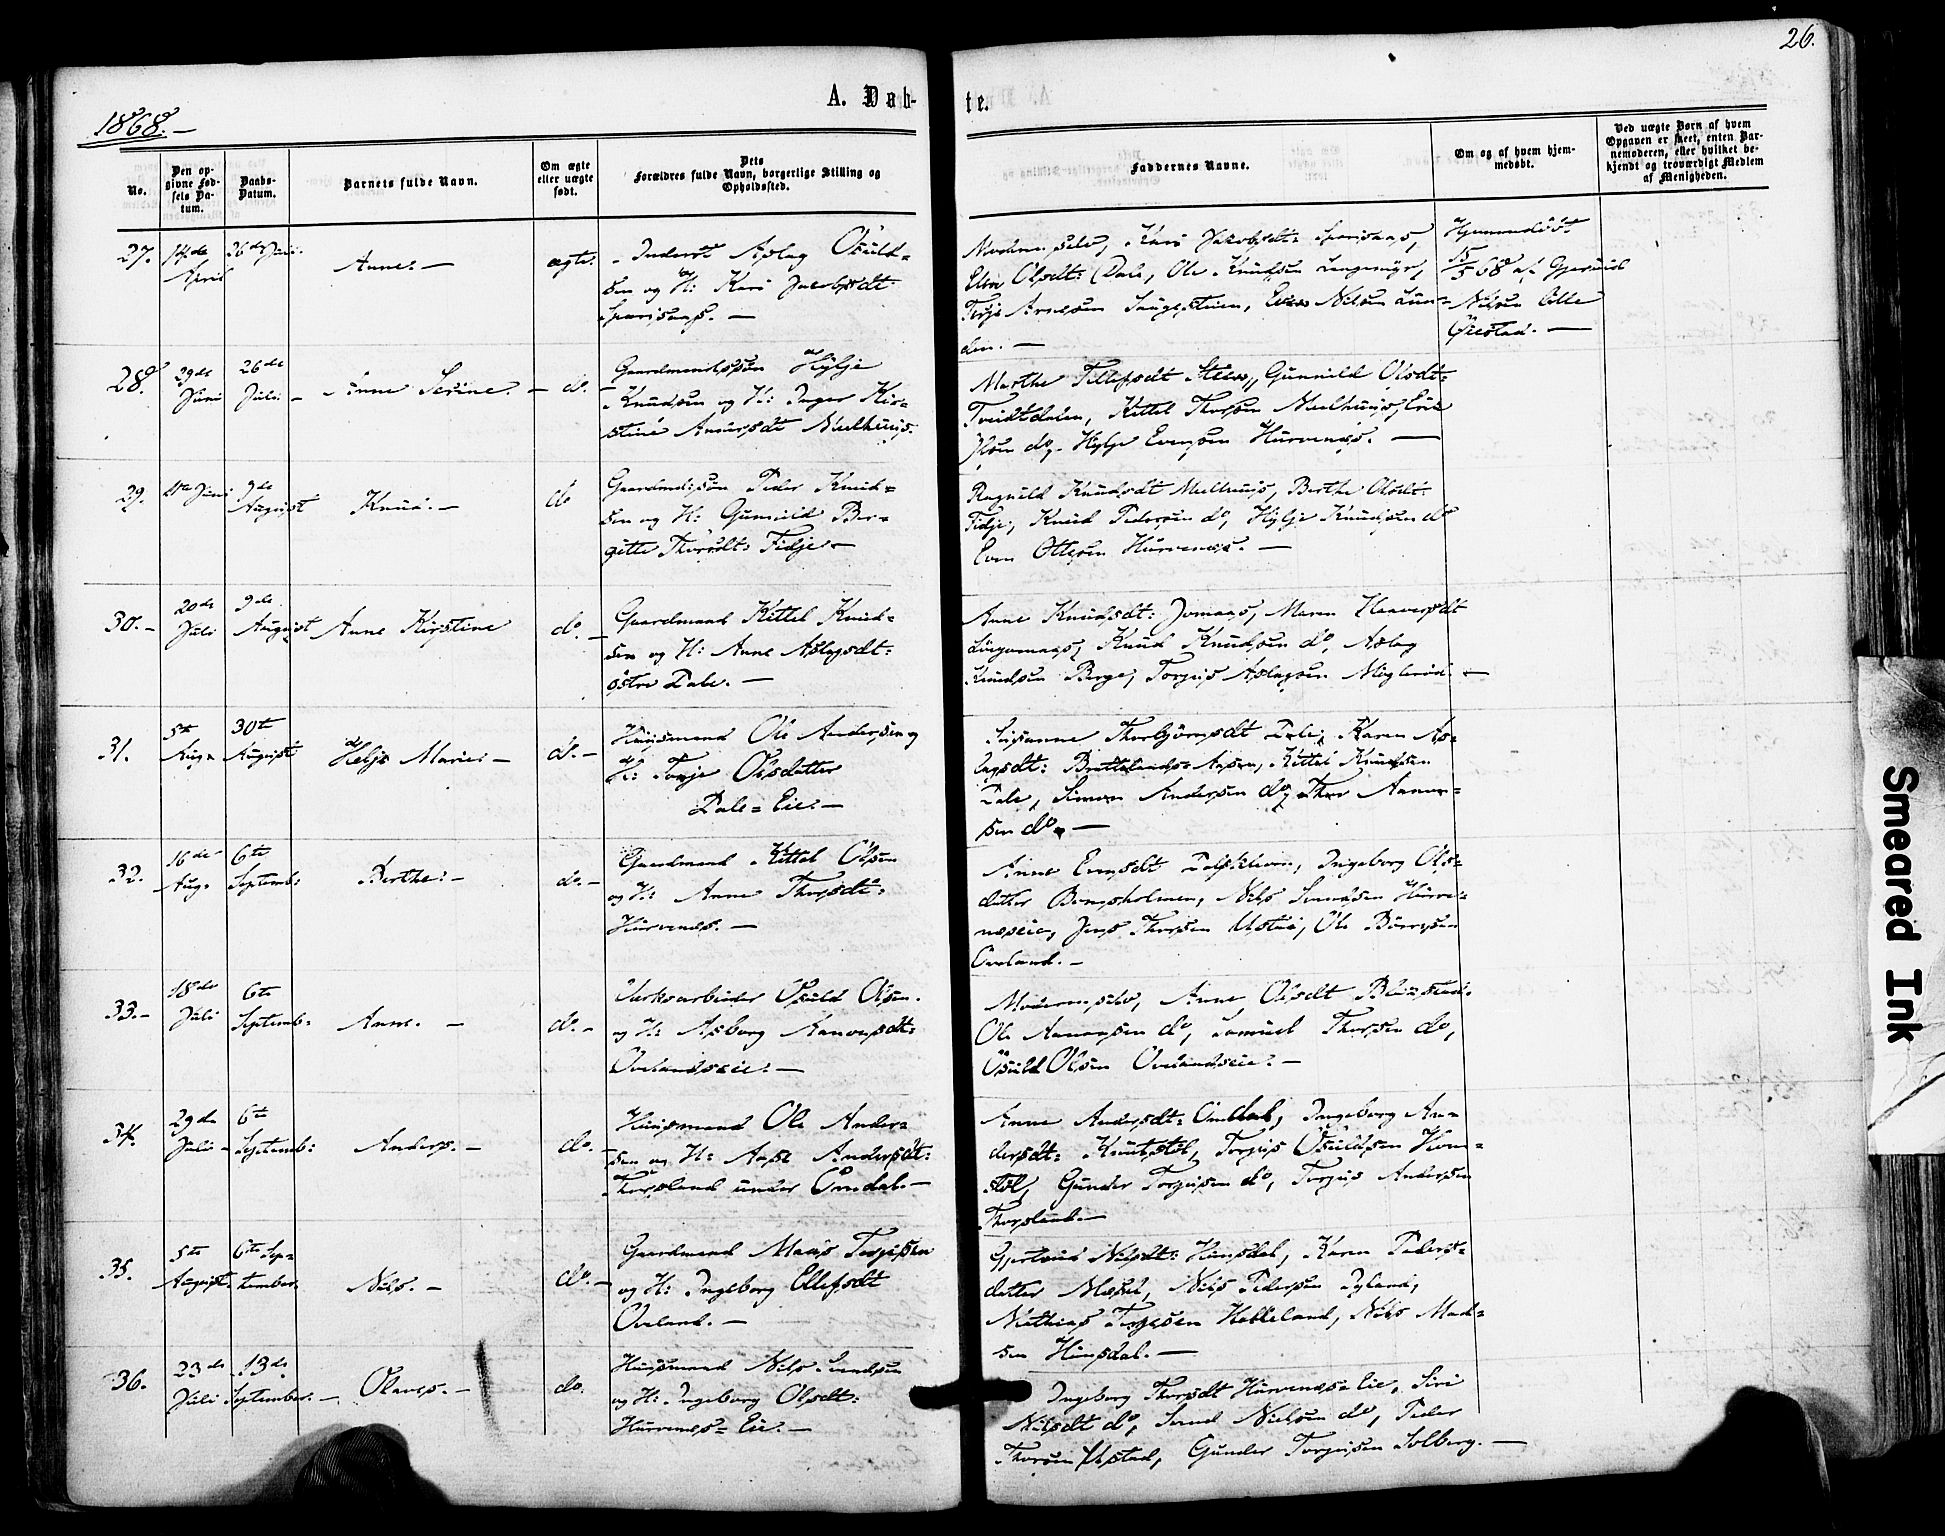 26.
A. Døbte.
1868. —
No.
Den opgivne Fødsels Datum.
Daabs-Datum.
Barnets fulde Navn.
Om ægte eller uægte født.
Dets Forældres fulde Navn, borgerlige Stilling og Opholdssted.
Faddernes Navne.
Om og af hvem hjemmedøbt.
Ved uægte Børn af hvem Opgaven er skeet, enten Barnemoderen, eller hvilket bekjendt og troværdigt Medlem af Menigheden.
27. 14de April 26de Juni Anne. — ægte.
Inderst Aslag Osuld=
sen og H: Kari Jacobsdt:
—
Moderen selv, Kari Jakobsdt:
Olsdt: Dale, Ole Knudsen Langemyr,
Terje Arnesen Nilsen Lun=
den. —
Hjemmedøbt
15/5 68 af Gjeruld
Nilsen Lille
Øiestad. —
28. 29de Juni 26de Juli — Anne Serine. — do. —
Gaardmandssøn Hylje
Knudsen og H: Inger Kir=
stine Andersdt Mælhuus.
Marthe Tellefsdt Steen, Gunnild Olsdt:
Tveidtdalen, Kittel Thorsen Mælhuus,
do, Hylje Evensen Hurvenæs. —
29. Juni 9de August Knud. — do
Gaardmdssøn Peder Knud=
sen og H: Gunvild Bir=
gitte Thorsdt: Fidje —
Ragnild Knudsdt Mælhuus, Berthe Olsdt:
Fidje, Knud Pedersen do, Hylje Knudsen do
Even Ottesen Hurvenæs. —
30. — 20de Juli 9de August Anne Kirstine do. —
Gaardmand Kittel Knud=
sen og H: Anne Aslagsdt:
østre Dale. —
Anne Knudsdt: Jomaas, Maren Haaversdt
Lingumaas, Knud Knudsen do, Aslag
Knudsen Berge, Torjus Aslagsen Møglerød. —
31. 5te Aug. 30te August Helje Marie — do. —
Huusmand Ole Andersen og
H: Torje Olsdatter
Dale=Eie. —
Susanne Thorbjørnsdt Dale, Karen As=
lagsdt: Brattelands-Aasen, Kittel Knudsen
Dale, Simon Andersen do, Thor Aanen=
sen do. —
32. 16de Aug. 6te Septemb: Berthe. — do. —
Gaardmand Kittel Olsen
og H: Anne Thorsdt:
Hurvenæs. —
Anne Evensdt Dalskleven, Ingeborg Ols=
datter Bomsholmen, Nils Svendsen Hurve=
næseie, Jens Thorsen Ustad, Ole Børresen
Oveland. —
33. — 18de Juli 6te Septemb: Anne. — do. —
Værksarbeider Osuld Olsen
og H: Asborg Aanonsdt:
Ovelandseie. —
Moderen selv, Anne Olsdt
Ole Aanonsen do, Samuel Thorsen do,
Osuld Olsen Ovelandseie. —
34. 29de Juli — 6te Septemb: Anders. — do. —
Huusmand Ole Ander=
sen og H: Aase Andersdt:
Thorsland under Omdal. —
Anne Andersdt: Omdal, Ingeborg An=
dersdt: Knutstøl, Torjus Osuldsen Hom=
støl, Gunder Torjusen do, Torjus Andersen
Thorsland. —
35. 5te August. 6te September. Nils. — do. —
Gaardmand Mads Terjesen
og H: Ingeborg Ellefsdt
Oveland. —
Gjertrud Nilsdt: Hunsdal, Karen Peders=
datter Mæsel, Nils Pedersen Dyland,
Mathias Terjesen Hekkeland, Nils Mad=
sen Hunsdal. —
36. 23de Juli 13de September. — Olaves. — do.
Huusmand Nils Svendsen
og H: Ingeborg Olsdt:
Hurvenæs=Eie. —
Ingeborg Thorsdt Hurvenæs=Eie, Siri
Nilsdt do, Svend Nielsen do, Peder
Thorsen Ustad, Gunder Torjusen Solberg. —
Smeared Ink